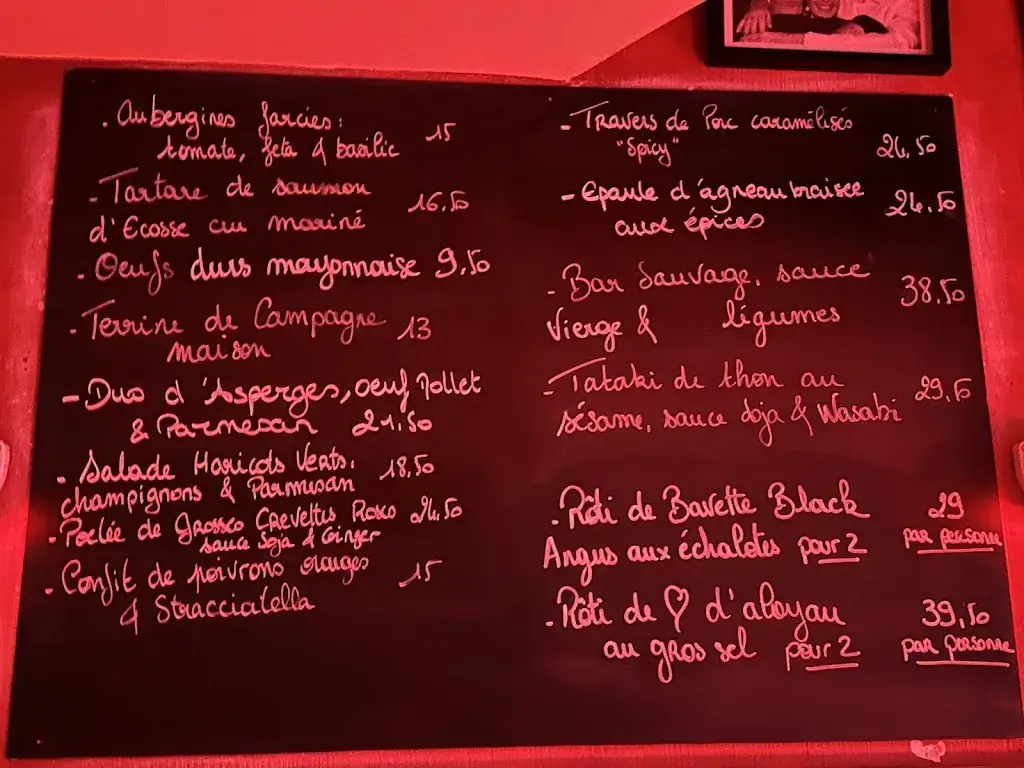 . Aubergines farcies: 15
tomate, feta & basilic
- Tartare de saumon 16.50
d'Ecosse cru mariné
. Oeufs durs mayonnaise 9,50
- Terrine de Campagne 13
maison
- Duo d'Asperges, oeuf Mollet
& Parmesan 21,50
. Salade Haricots Verts, 18,50
champignons & Parmesan
. Poelée de Grosses Crevettes Roses 24,50
sauce Soja & Ginger
. Confit de poivrons rouges 15
& Stracciatella
- Travers de Porc caramélisés
"Spicy" 24,50
- Epaule d'agneau braisée 24,50
aux épices
- Bar Sauvage, sauce 38.50
Vierge & légumes
- Tataki de thon au 29,50
sésame, sauce soja & Wasabi
. Rôti de Bavette Black 29
Angus aux échalotes pour 2 par personne
. Rôti de ♡ d'aloyau 39,50
au gros sel pour 2 par personne